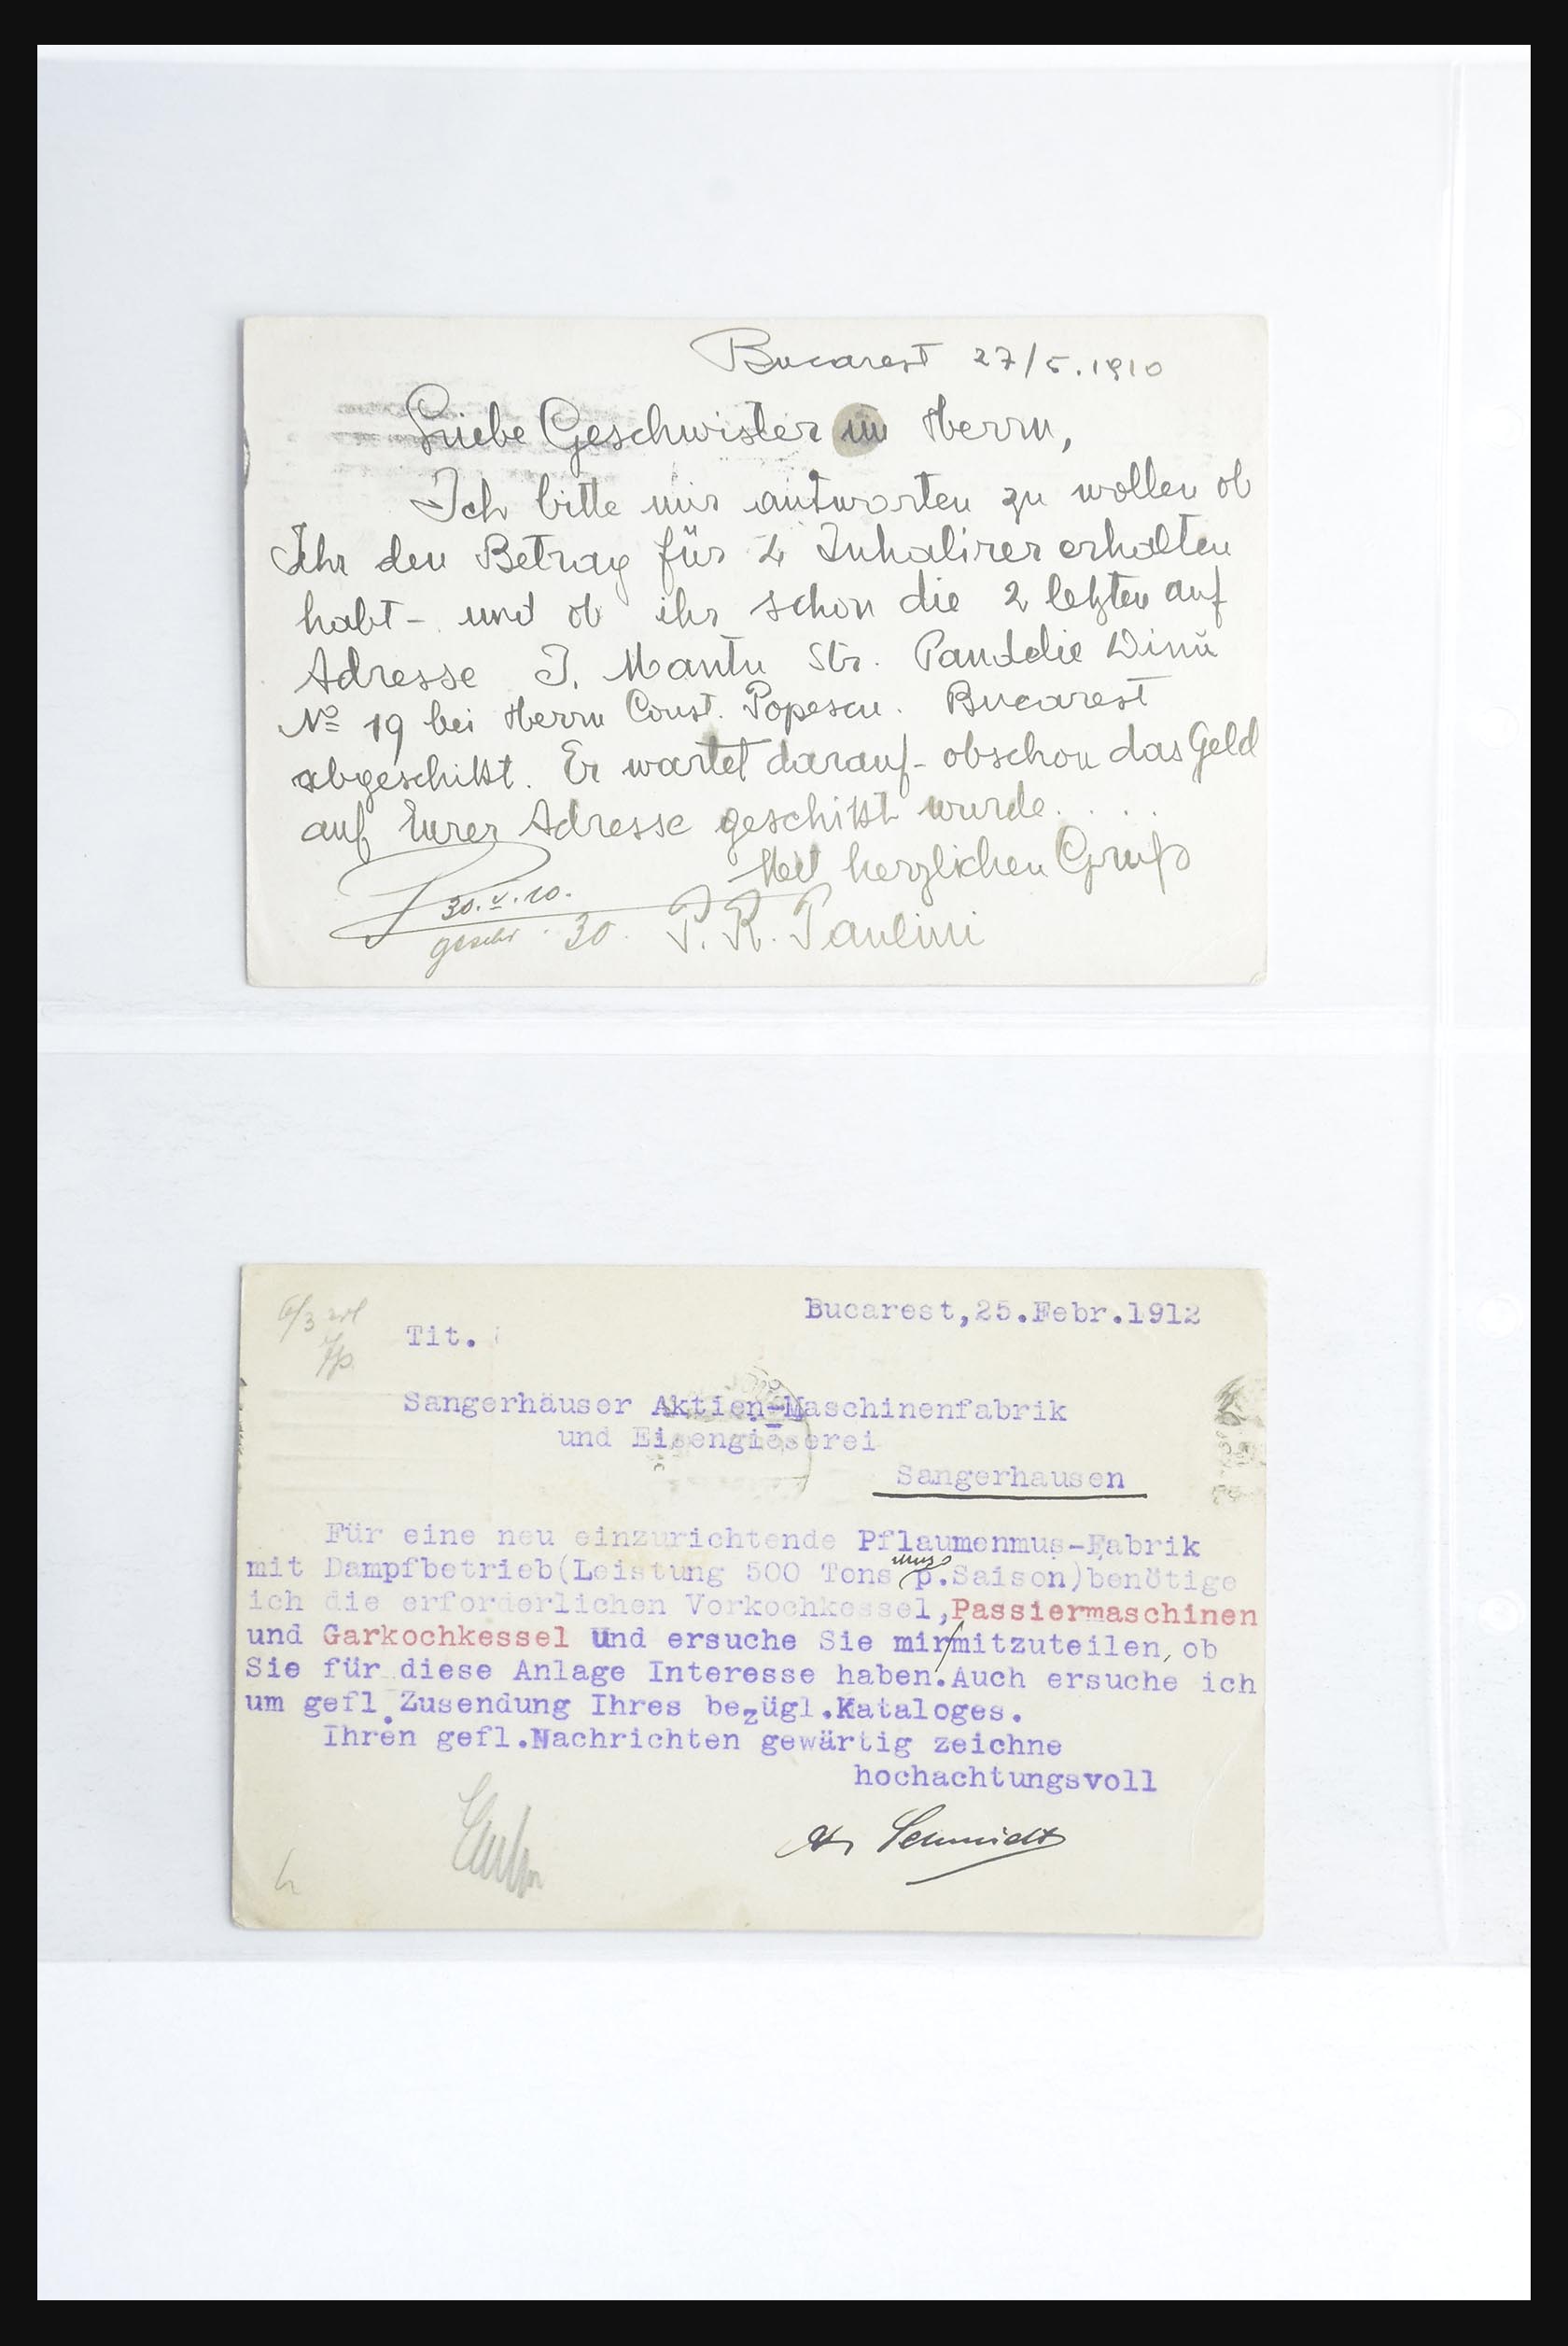 Bucarest 27/5.1910
Liebe Geschwister im Herrn,
Ich bitte mir antworten zu wollen ob
Ihr den Betrag für 4 Inhalirer erhalten
habt - und ob ihr schon die 2 letzten auf
Adresse J. Mantu Str. Pandelie Dinŭ
No 19 bei Herrn Const. Popescu. Bucarest
abgeschikt. Er wartet darauf - obschon das Geld
auf Eurer Adresse geschikt wurde. . . .
Mit herzlichen Gruß
30.V.10.
geschr. 30. P. R. Paulini
6/3
Bucarest,25.Febr.1912
Tit.
Sangerhäuser Aktien-Maschinenfabrik
und Eisengieserei
Sangerhausen
Für eine neu einzurichtende Pflaumenmus-Fabrik
mus
mit Dampfbetrieb(Leistung 500 Tons p.Saison)benötige
ich die erforderlichen Vorkochkessel,Passiermaschinen
und Garkochkessel und ersuche Sie mir/mitzuteilen, ob
Sie für diese Anlage Interesse haben.Auch ersuche ich
um gefl.Zusendung Ihres bezügl.Kataloges.
Ihren gefl.Nachrichten gewärtig zeichne
hochachtungsvoll
Schmidt